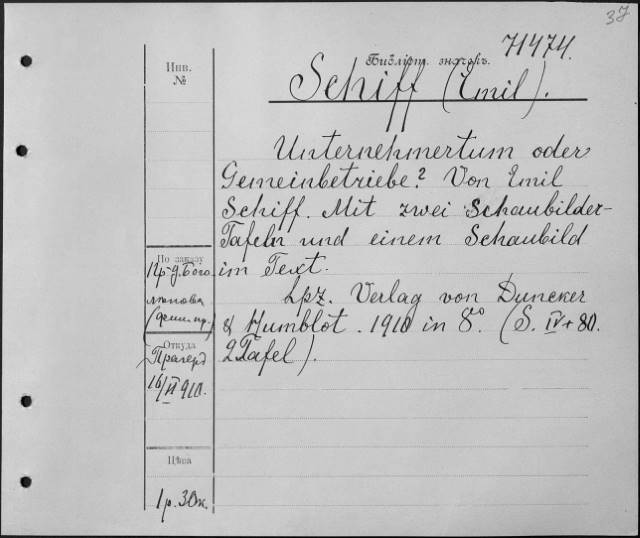 37
71474.
Инв.
№
Библіот. значокъ.
Schiff (Emil).
Unternehmertum oder
Gemeinbetriebe? Von Emil
Schiff. Mit zwei Schaubilder-
Tafeln und einem Schaubild
im Text.
Lpz. Verlag von Duncker
& Humblot. 1910 in 8°. (S. IV + 80.
2 Tafel).
По заказу
Пр-д. Бого
лѣпова
Откуда
Прагеръ
16/II 910.
Цѣна
1 р. 30 к.